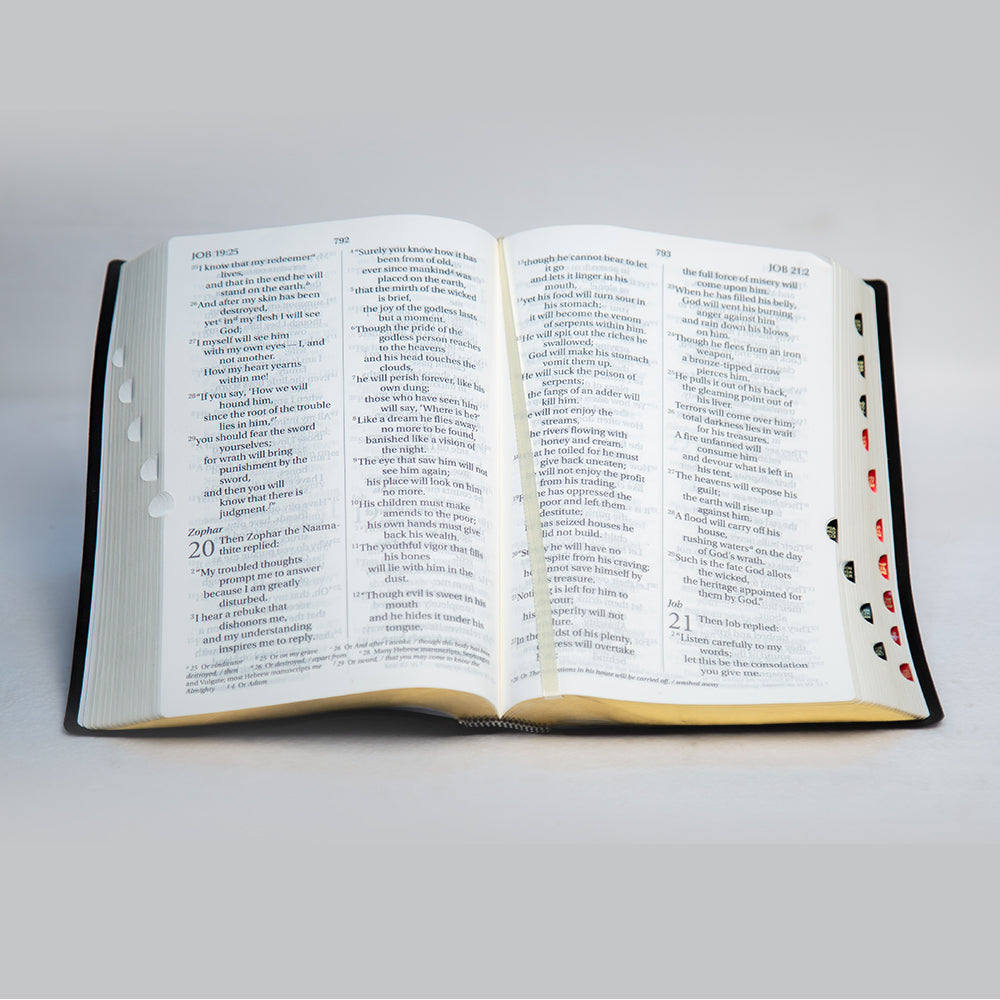 JOB 19:25
792
25 I know that my redeemer a
lives,
and that in the end he will
stand on the earth. b
26 And after my skin has been
destroyed,
yet c in d my flesh I will see
God;
27 I myself will see him
with my own eyes — I, and
not another.
How my heart yearns
within me!
28 “If you say, ‘How we will
hound him,
since the root of the trouble
lies in him, e’
29 you should fear the sword
yourselves;
for wrath will bring
punishment by the
sword,
and then you will
know that there is
judgment. f”
Zophar
20 Then Zophar the Naama-
thite replied:
2 “My troubled thoughts
prompt me to answer
because I am greatly
disturbed.
3 I hear a rebuke that
dishonors me,
and my understanding
inspires me to reply.
4 “Surely you know how it has
been from of old,
ever since mankind g was
placed on the earth,
5 that the mirth of the wicked
is brief,
the joy of the godless lasts
but a moment.
6 Though the pride of the
godless person reaches
to the heavens
and his head touches the
clouds,
7 he will perish forever, like his
own dung;
those who have seen him
will say, ‘Where is he?’
8 Like a dream he flies away,
no more to be found,
banished like a vision of
the night.
9 The eye that saw him will not
see him again;
his place will look on him
no more.
10 His children must make
amends to the poor;
his own hands must give
back his wealth.
11 The youthful vigor that fills
his bones
will lie with him in the
dust.
12 “Though evil is sweet in his
mouth
and he hides it under his
tongue,
a 25 Or vindicator b 25 Or on my grave c 26 Or And after I awake, / though this body has been
destroyed, / then d 26 Or destroyed, / apart from e 28 Many Hebrew manuscripts, Septuagint
and Vulgate; most Hebrew manuscripts me f 29 Or sword, / that you may come to know the
Almighty g 4 Or Adam
793
JOB 21:2
13 though he cannot bear to let
it go
and lets it linger in his
mouth,
14 yet his food will turn sour in
his stomach;
it will become the venom
of serpents within him.
He will spit out the riches he
swallowed;
God will make his stomach
vomit them up.
He will suck the poison of
serpents;
the fangs of an adder will
kill him.
He will not enjoy the
streams,
the rivers flowing with
honey and cream.
he toiled for he must
give back uneaten;
he will not enjoy the profit
from his trading.
he has oppressed the
poor and left them
destitute;
has seized houses he
did not build.
20 he will have no
respite from his craving;
he cannot save himself by
his treasure.
21 is left for him to
devour;
his prosperity will not
22 In the midst of his plenty,
distress will overtake
the full force of misery will
come upon him.
23 When he has filled his belly,
God will vent his burning
anger against him
and rain down his blows
on him.
24 Though he flees from an iron
weapon,
a bronze-tipped arrow
pierces him.
25 He pulls it out of his back,
the gleaming point out of
his liver.
Terrors will come over him;
26 total darkness lies in wait
for his treasures.
A fire unfanned will
consume him
and devour what is left in
his tent.
27 The heavens will expose his
guilt;
the earth will rise up
against him.
28 A flood will carry off his
house,
rushing waters a on the day
of God’s wrath.
29 Such is the fate God allots
the wicked,
the heritage appointed for
them by God.”
Job
21 Then Job replied:
2 “Listen carefully to my
words;
let this be the consolation
you give me.
a 28 Or The possessions in his house will be carried off, / washed away